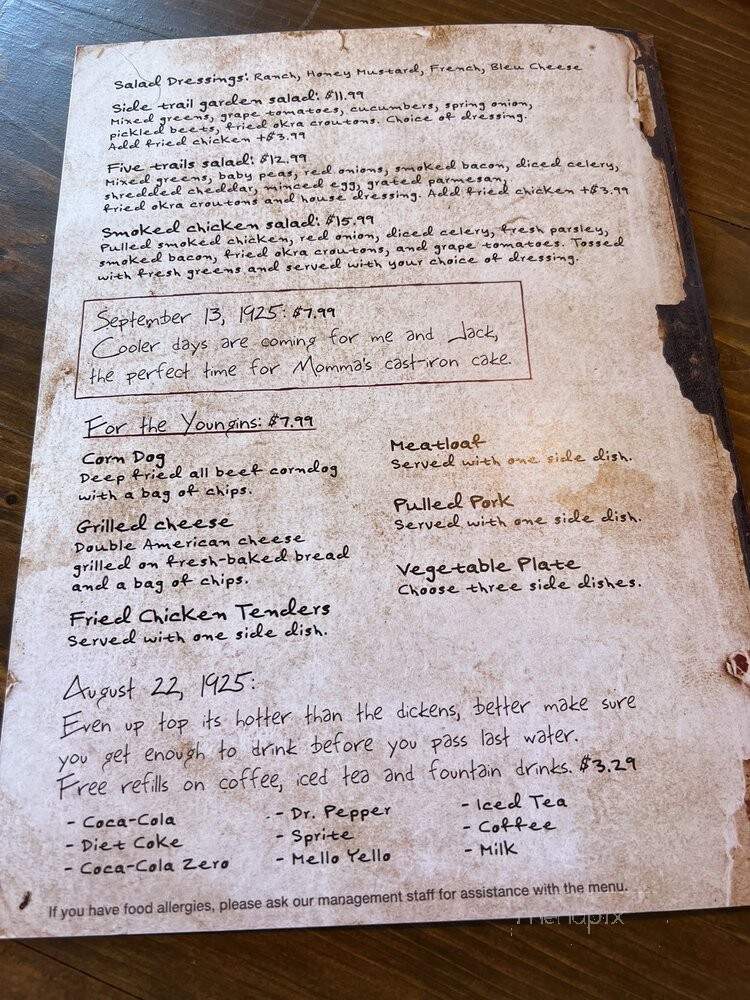 Salad Dressings: Ranch, Honey Mustard, French, Bleu Cheese
Side trail garden salad: $11.99
Mixed greens, grape tomatoes, cucumbers, spring onion,
pickled beets, fried okra croutons. Choice of dressing.
Add fried chicken +$3.99
Five trails salad: $12.99
Mixed greens, baby peas, red onions, smoked bacon, diced celery,
shredded cheddar, minced egg, grated parmesan,
fried okra croutons and house dressing. Add fried chicken +$3.99
Smoked chicken salad: $15.99
Pulled smoked chicken, red onion, diced celery, fresh parsley,
smoked bacon, fried okra croutons, and grape tomatoes. Tossed
with fresh greens and served with your choice of dressing.
September 13, 1925: $7.99
Cooler days are coming for me and Jack,
the perfect time for Momma's cast-iron cake.
For the Youngins: $7.99
Corn Dog
Deep fried all beef corndog
with a bag of chips.
Grilled cheese
Double American cheese
grilled on fresh-baked bread
and a bag of chips.
Fried Chicken Tenders
Served with one side dish.
Meatloaf
Served with one side dish.
Pulled Pork
Served with one side dish.
Vegetable Plate
Choose three side dishes.
August 22, 1925:
Even up top its hotter than the dickens, better make sure
you get enough to drink before you pass last water.
Free refills on coffee, iced tea and fountain drinks. $3.29
- Coca-Cola
- Diet Coke
- Coca-Cola Zero
- Dr. Pepper
- Sprite
- Mello Yello
- Iced Tea
- Coffee
- Milk
If you have food allergies, please ask our management staff for assistance with the menu.
menupix